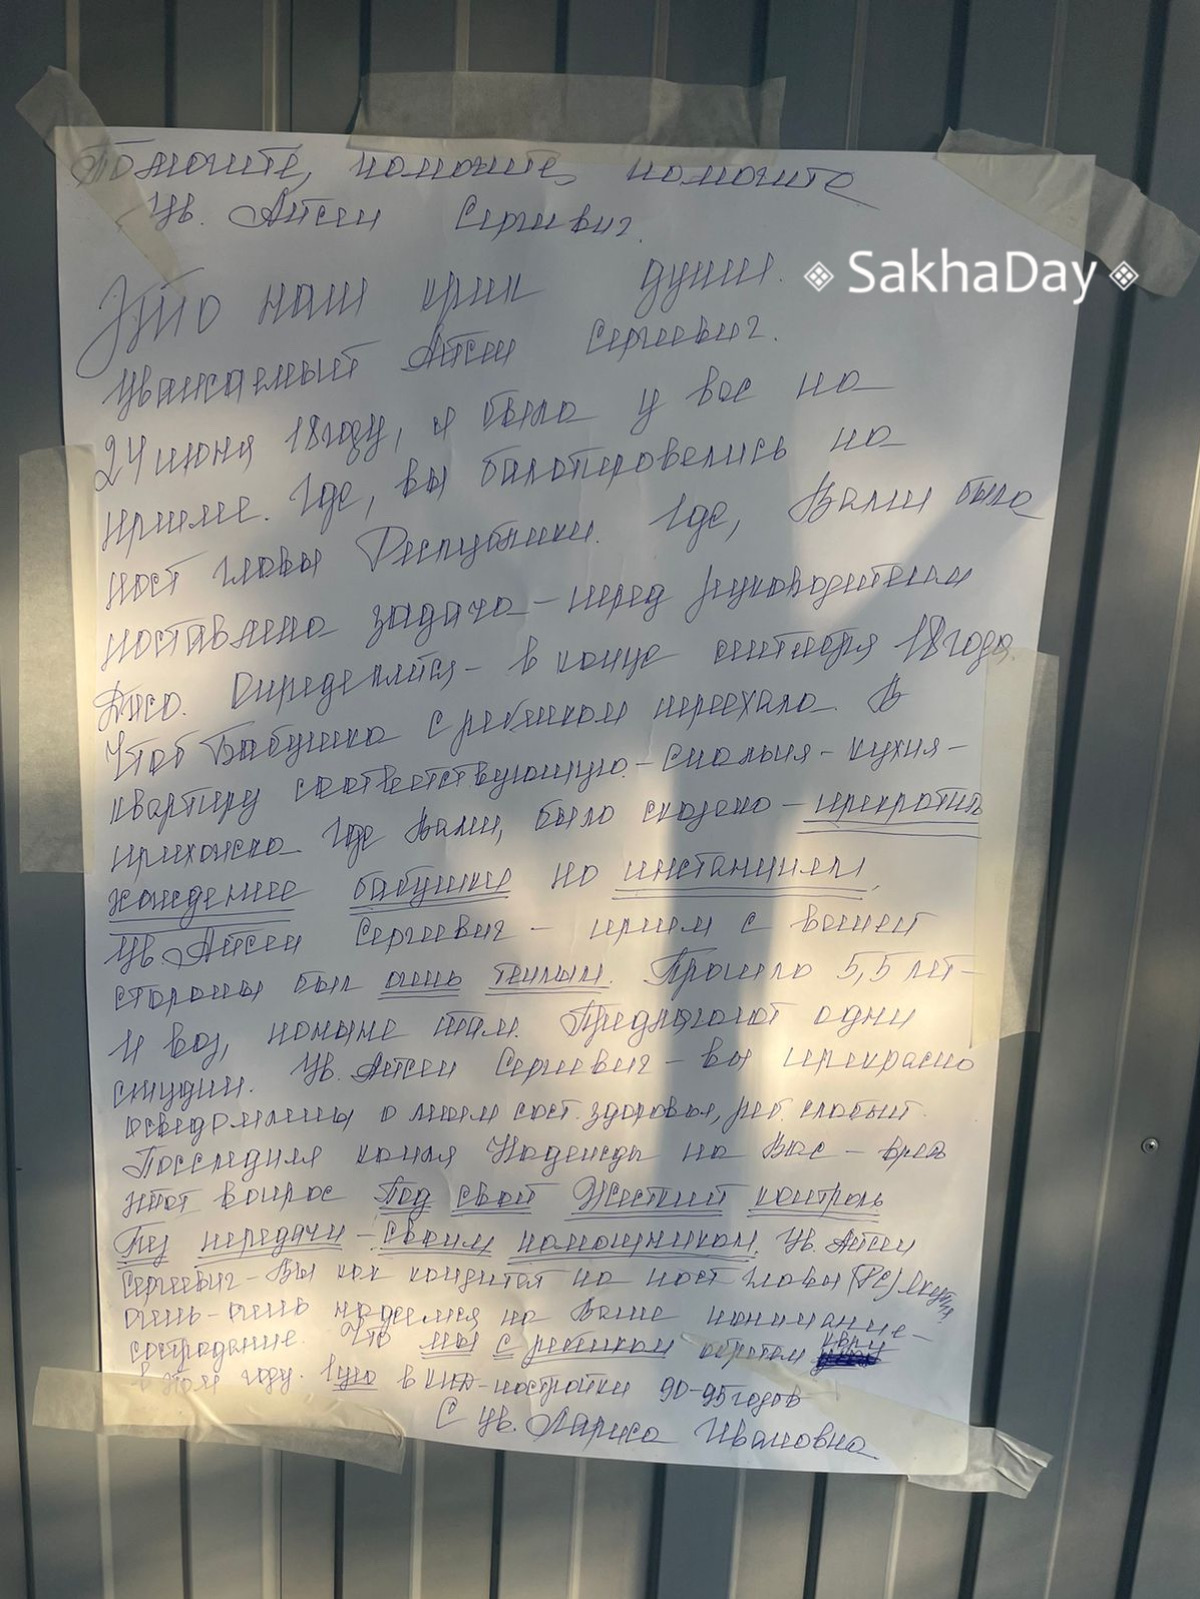 Помогите, помогите, помогите
Ув. Айсен Сергиевич.
SakhaDay
Это наш крик души.
Уважаемый Айсен Сергиевич.
24 июня 18году, я была у вас на
приеме. Где, вы балотировелись на
пост главы Республики. Где, Вами была
поставлена задача – перед руководителем
Определится – в конце сентября 18года.
Чтоб Бабушка с ребенком переехала. В
квартиру соответствующую. – Спальня – кухня –
прихожка Где Вами, было сказано – прекратить
хождение бабушки по инстанциям,
Ув. Айсен Сергиевич – прием с вашей
стороны был очень теплым. Прошло 5,5 лет –
И воз, поныне там. Предлагают одни
студии. Ув. Айсен Сергиевич – вы прекрасно
осведомлены о моем сост. здоровья, реб. слабый.
Последняя капля Надежды на Вас – взять
этот вопрос Под свой Жесткий контроль
Без передачи – своим помощникам. Ув. Айсен
Сергиевич – Вы как кондитат на пост главы (РС) Якутия
очень – очень надеемся на Ваше понимание –
сострадание. Что мы с ребенком обретем кварт
в этом году. 1ую в КПД – постройки 90-95годов
С ув. Лариса Ивановна